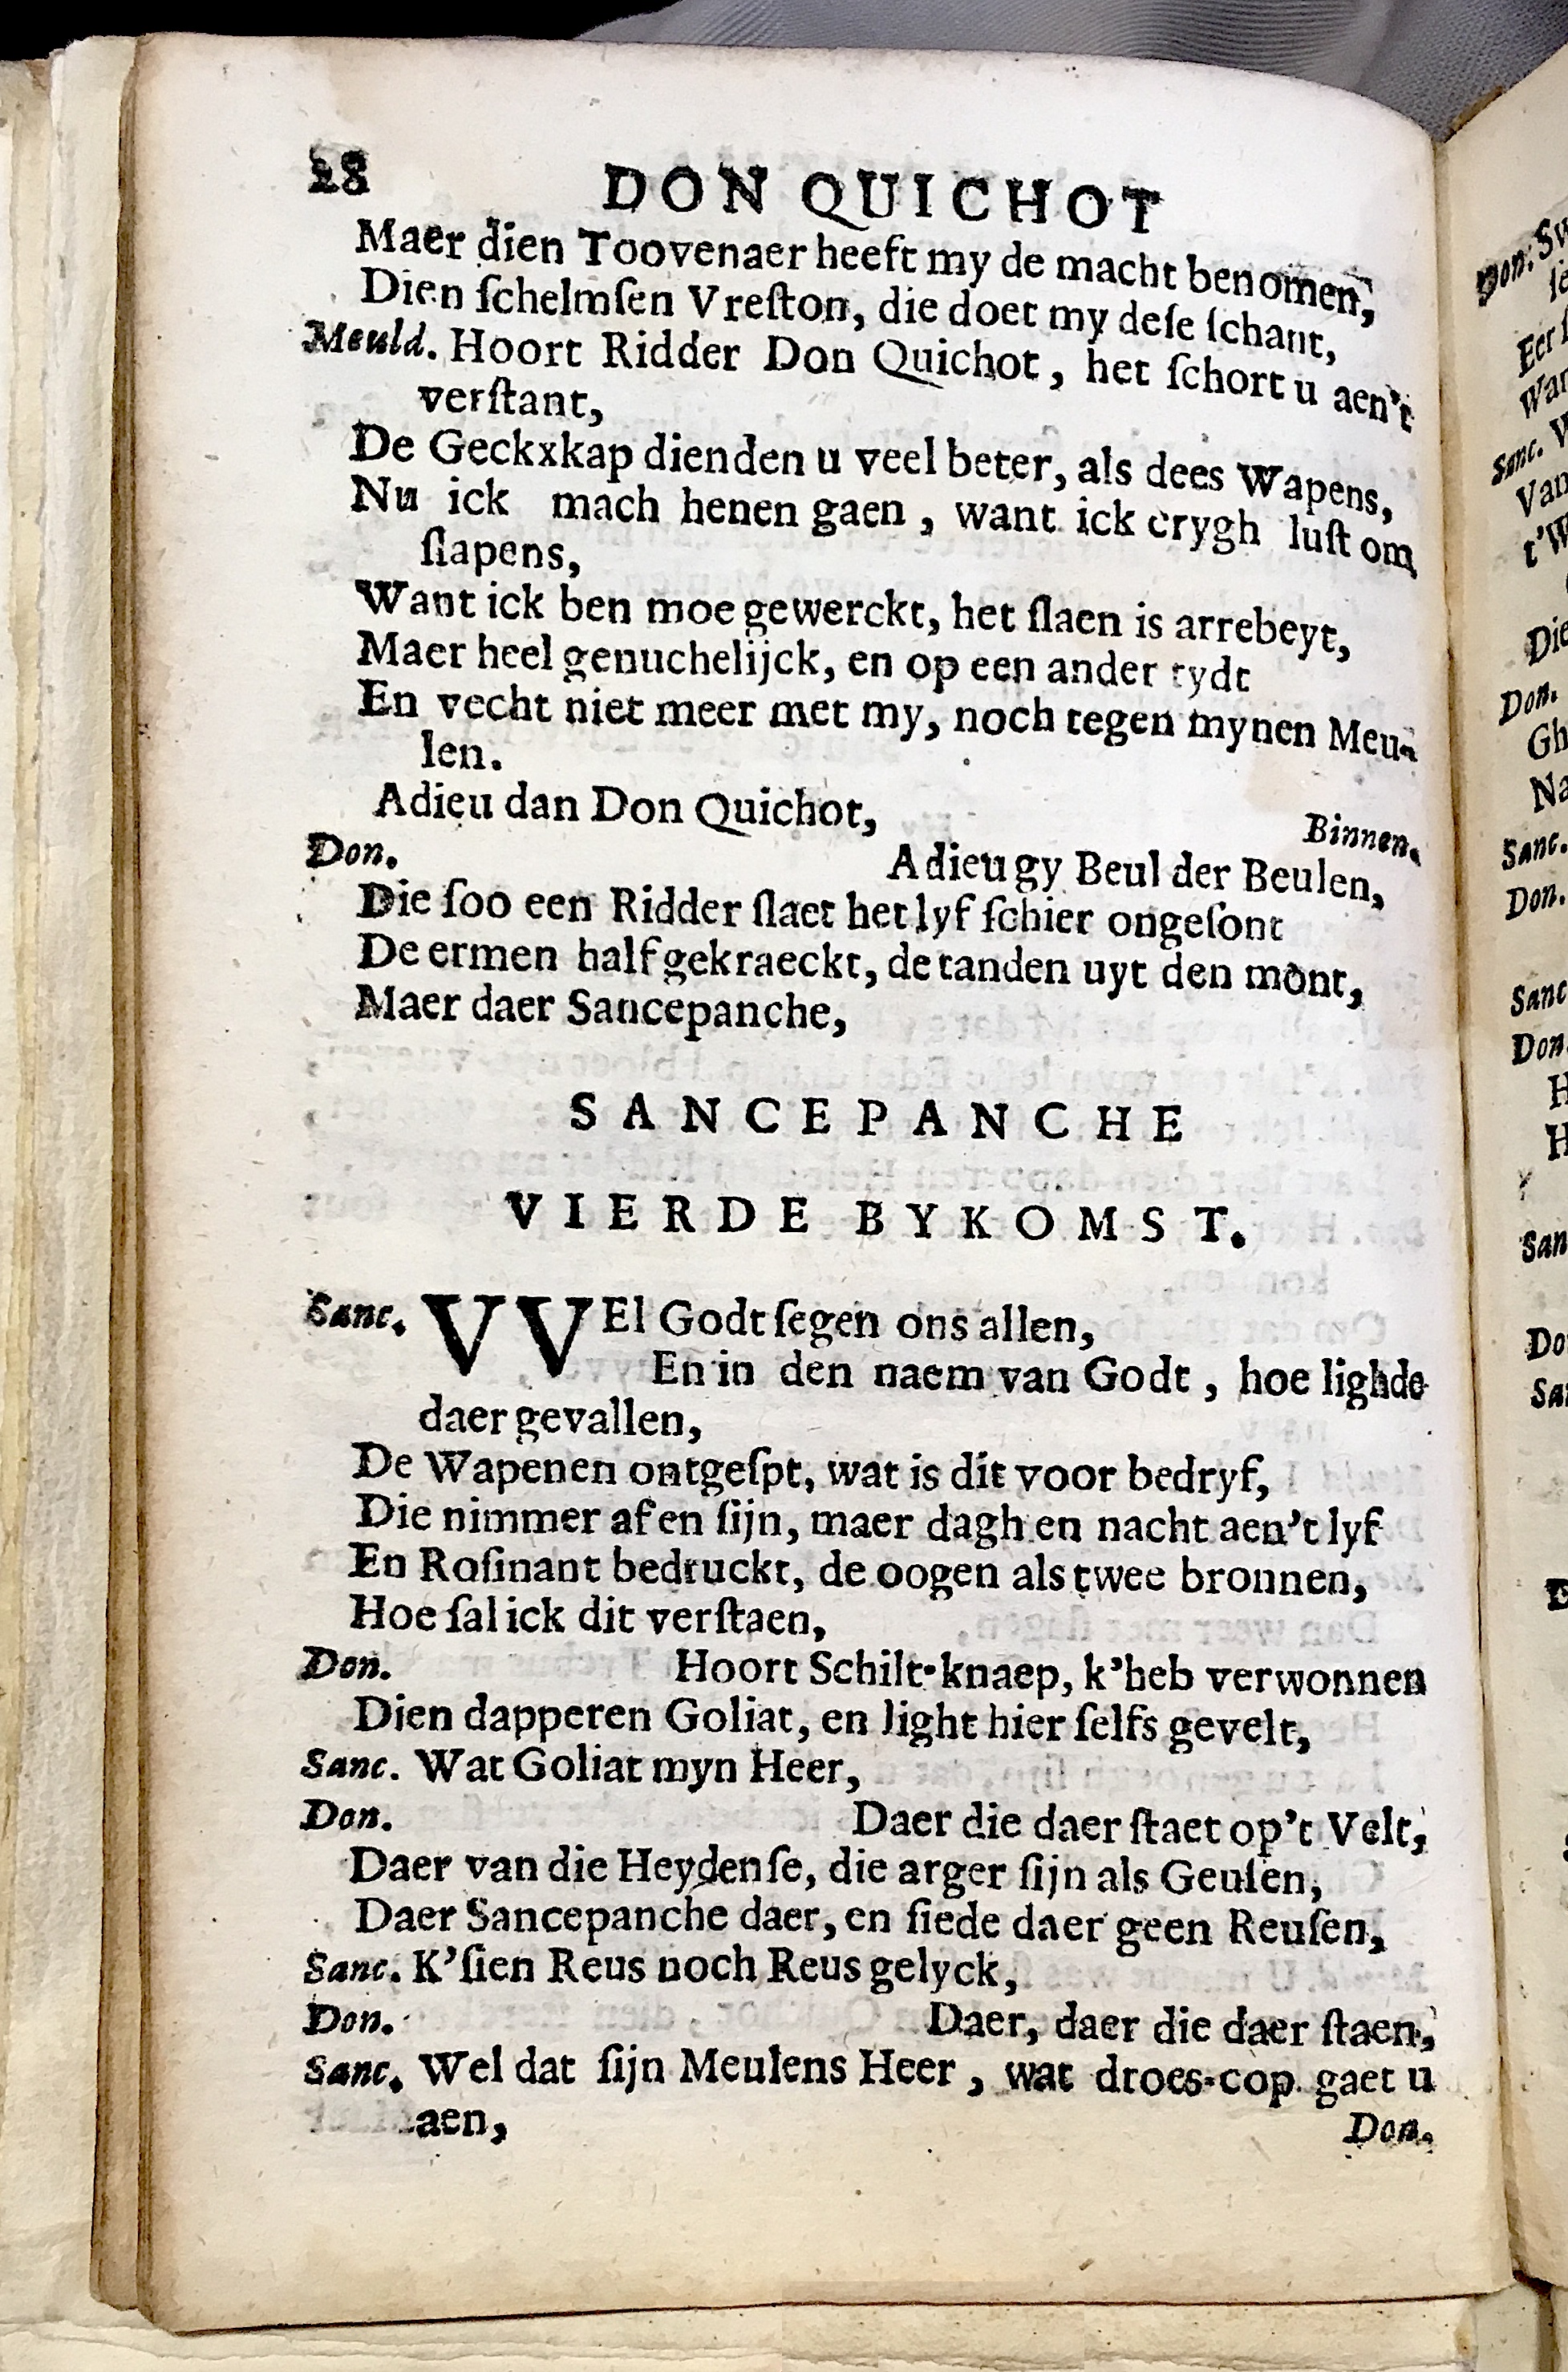 28 DON QUICHOT
Maer dien Toovenaer heeft my de macht benomen,
Dien ſchelmſen Vreſton, die doet my deſe ſchant,
Meuld. Hoort Ridder Don Quichot, het ſchort u aen't
verſtant,
De Geckxkap dienden u veel beter, als dees Wapens,
Nu ick mach henen gaen, want ick crygh luſt om
ſlapens,
Want ick ben moe gewerckt, het ſlaen is arrebeyt,
Maer heel genuchelijck, en op een ander tydt
En vecht niet meer met my, noch tegen mynen Meu-
len.
Adieu dan Don Quichot,
Binnen.
Don. Adieu gy Beul der Beulen,
Die ſoo een Ridder ſlaet het lyf ſchier ongeſont
De ermen half gekraeckt, de tanden uyt den mont,
Maer daer Sancepanche,
SANCEPANCHE
VIERDE BYKOMST.
Sanc. VVEl Godt ſegen ons allen,
En in den naem van Godt, hoe lighde
daer gevallen,
De Wapenen ontgeſpt, wat is dit voor bedryf,
Die nimmer af en ſijn, maer dagh en nacht aen't lyf
En Roſinant bedruckt, de oogen als twee bronnen,
Hoe ſal ick dit verſtaen,
Don. Hoort Schilt-knaep, k'heb verwonnen
Dien dapperen Goliat, en light hier ſelfs gevelt,
Sanc. Wat Goliat myn Heer,
Don. Daer die daer ſtaet op't Velt,
Daer van die Heydenſe, die arger ſijn als Geuſen,
Daer Sancepanche daer, en ſiede daer geen Reuſen,
Sanc. K'ſien Reus noch Reus gelyck,
Don. Daer, daer die daer ſtaen,
Sanc. Wel dat ſijn Meulens Heer, wat droes-cop gaet u
aen,
Don.